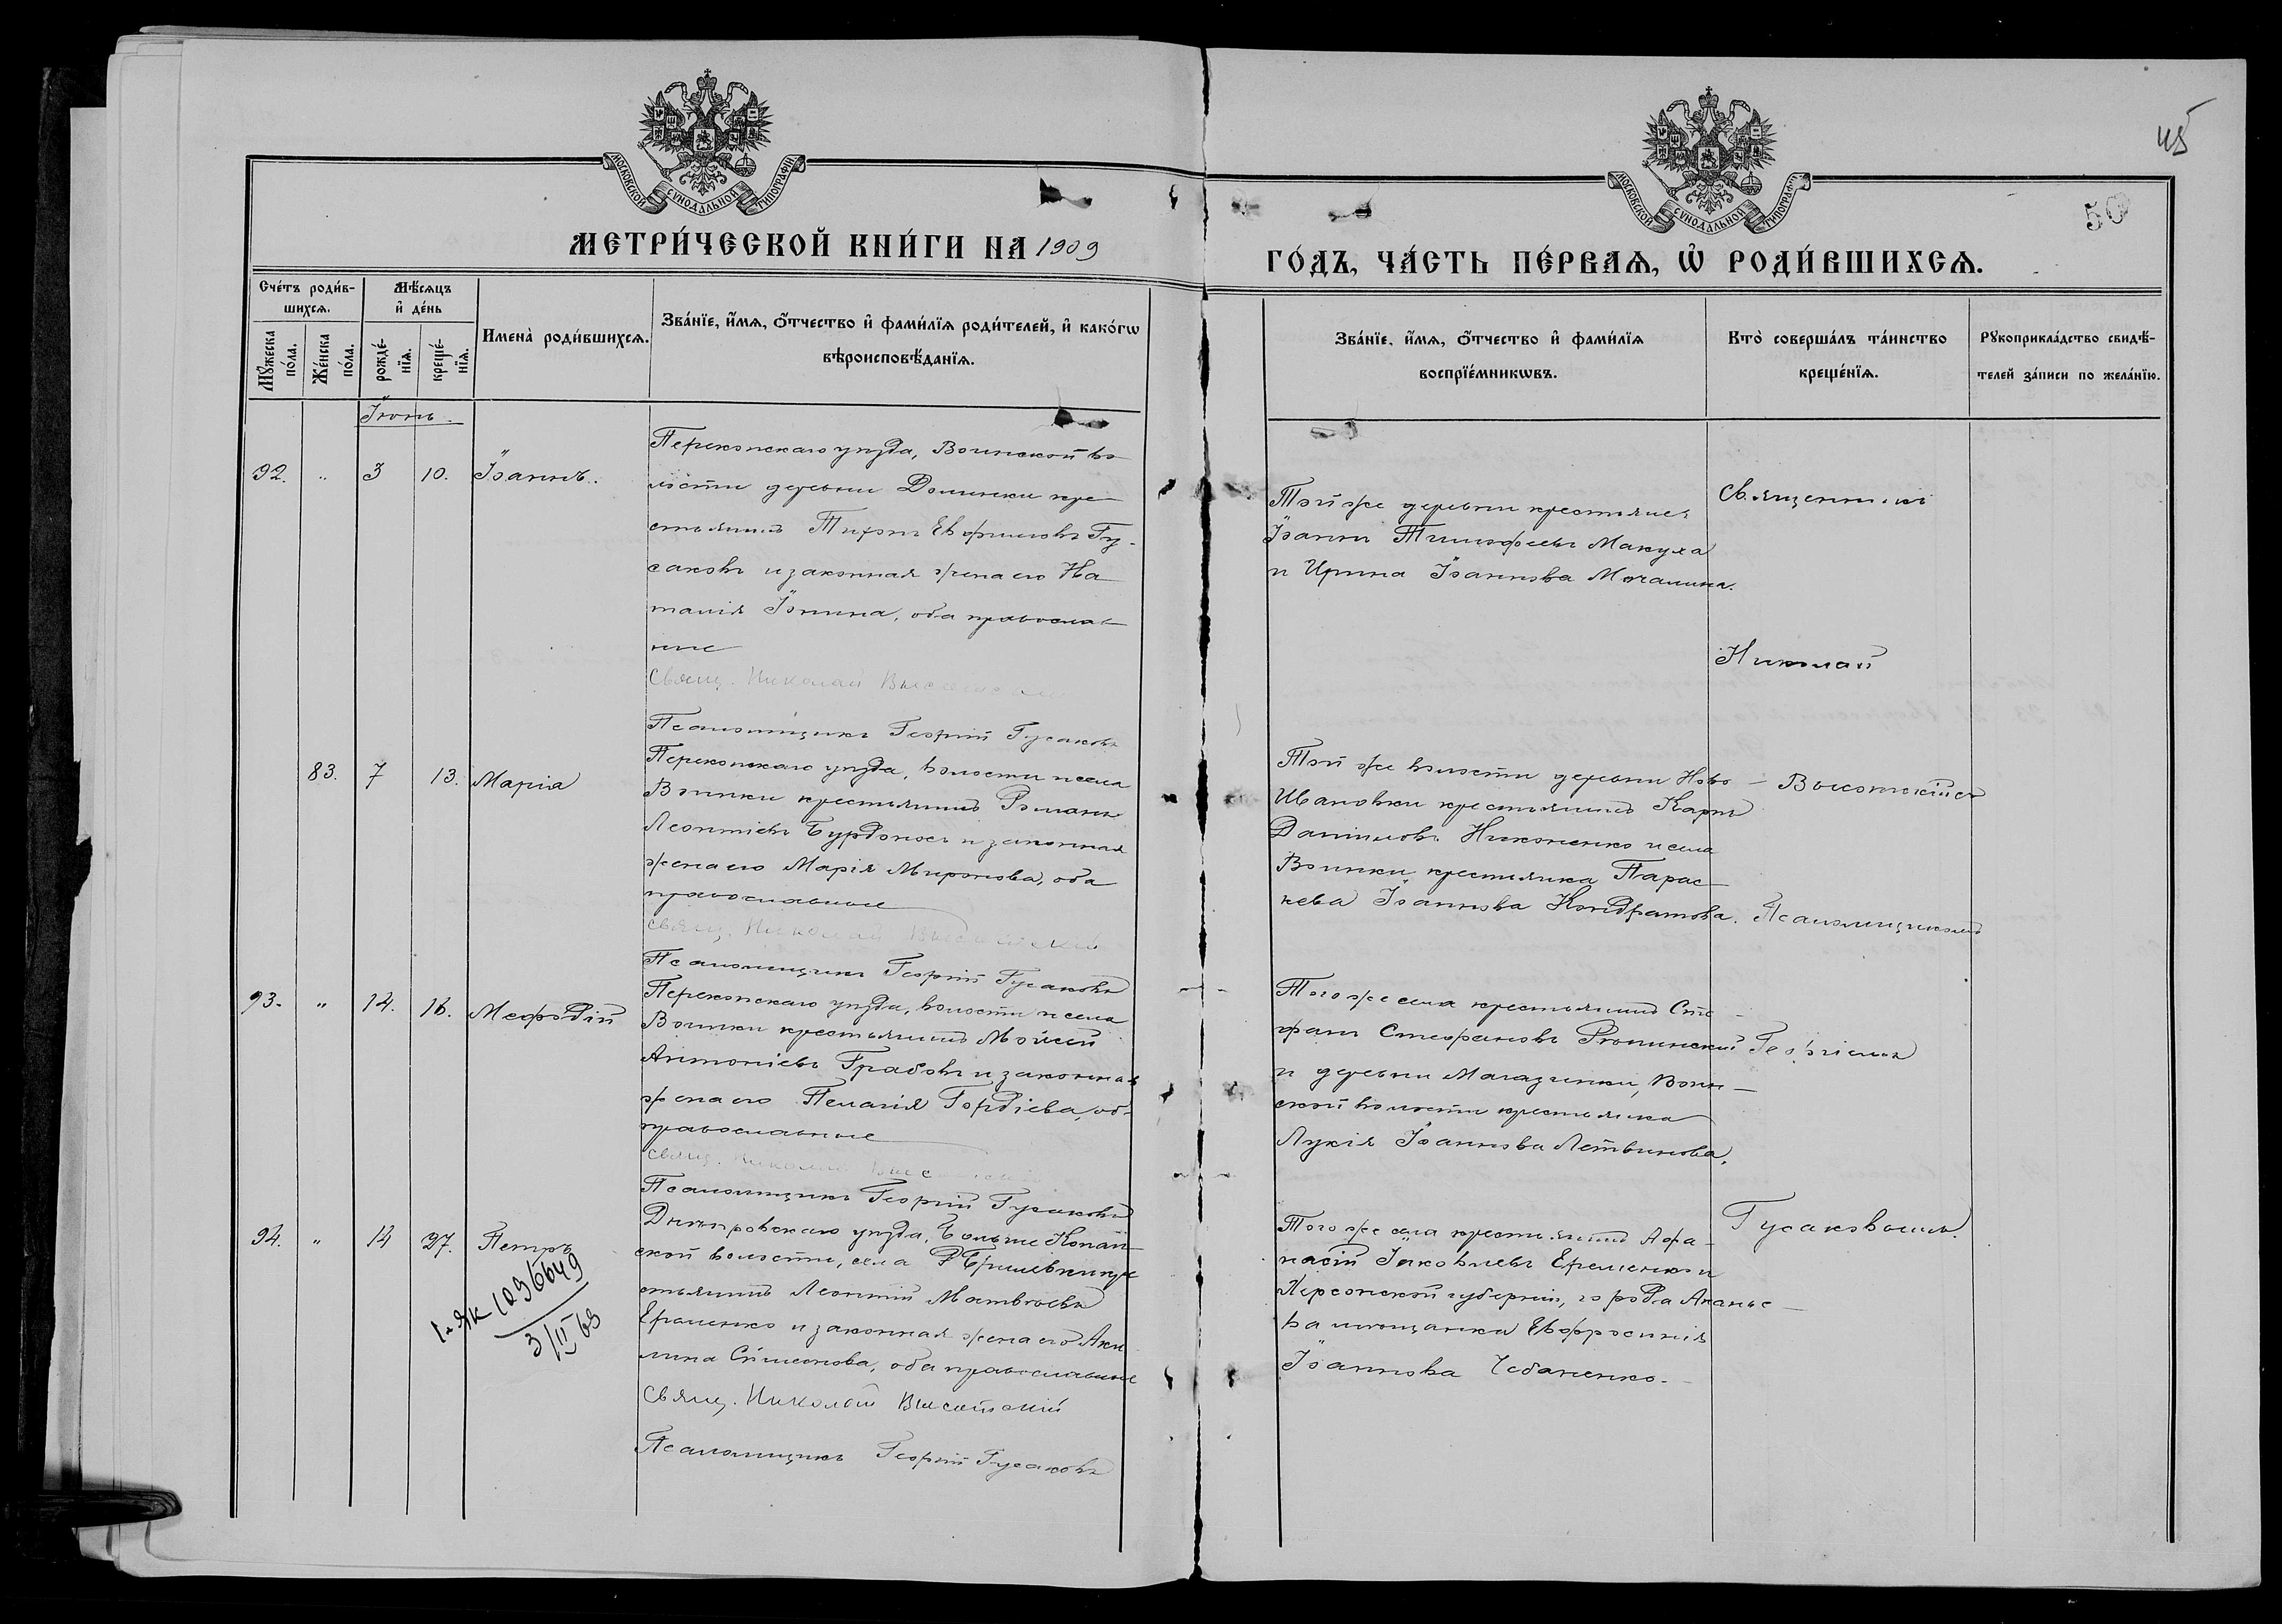 45
50
МОСКОВСКОЙ СѴНОДАЛЬНОЙ ТИПОГРАФІИ
МОСКОВСКОЙ СѴНОДАЛЬНОЙ ТИПОГРАФІИ
МЕТРИ́ЧЕСКОЙ КНИ́ГИ НА 1909
ГО́ДЪ, ЧА́СТЬ ПЕ́РВАѦ, Ѡ҆ РОДИ́ВШИХСѦ.
Сче́тъ роди́в-
шихсѧ.
Мꙋ́жеска по́ла.
Же́нска по́ла.
Мѣ́сяцъ
и҆ де́нь
рожде́-
нїѧ.
креще́-
нїѧ.
Имена̀ роди́вшихсѧ.
Зва́нїе, и҆́мѧ, ѻ҆́тчество и҆ фами́лїѧ роди́телей, и҆ како́гѡ
вѣроисповѣ́данїѧ.
Зва́нїе, и҆́мѧ, ѻ҆́тчество и҆ фами́лїѧ
воспрїе́мникѡвъ.
Кто̀ соверша́лъ та́инство
креще́нїѧ.
Рꙋкоприкла́дство свидѣ́-
телей за́писи по жела́нїю.
Іюнь.
92. " 3 10. Іоаннъ.
Перекопскаго уѣзда, Воинской во
лости деревни Долинки кре
стьянинъ Тихонъ Евфимовъ Гу-
саковъ и законная жена его На
талія Іонина, оба православ
ные
Свящ. Николай Высотскій
Псаломщикъ Георгій Гусаковъ
Той же деревни крестьяне:
Іоаннъ Тимофеевъ Макуха
и Ирина Іоаннова Мочалина.
Священникъ
Николай
83. 7 13. Марія
Перекопскаго уѣзда, волости и села
Воинки крестьянинъ Романъ
Леонтіевъ Бурдоносъ и законная
жена его Марія Миронова, оба
православные
Свящ. Николай Высотскій
Псаломщикъ Георгій Гусаковъ
Той же волости деревни Ново
Ивановки крестьянинъ Карпъ
Даніиловъ Никоненко и села
Воинки крестьянка Парас
кева Іоаннова Кондратова.
Высотскій съ
Псаломщикомъ
93. " 14. 16. Мефодій
Перекопскаго уѣзда, волости и села
Воинки крестьянинъ Моисей
Антоніевъ Грабовъ и законная
жена его Пелагія Гордіева, оба
православные
Свящ. Николай
Псаломщикъ Георгій Гусаковъ
Того же села крестьянинъ Сте
фанъ Стефановъ
и деревни Магазинки, Воин
ской волости крестьянка
Лукія Іоаннова Летвинова.
Георгіемъ
94. " 14 27. Петръ
Днѣпровскаго уѣзда, Больше Копан
ской волости, села Брилевки кре
стьянинъ Леонтій Матвѣевъ
Еременко и законная жена его Аки
лина Симеонова, оба православные
Свящ. Николай Высотскій
Псаломщикъ Георгій Гусаковъ
Того же села крестьянинъ Афа
насій Іаковлевъ Еременко и
Херсонской губерніи, города Ананье
ва мѣщанка Евфросинія
Іоаннова Чебаненко.
Гусаковымъ.
3/II 63